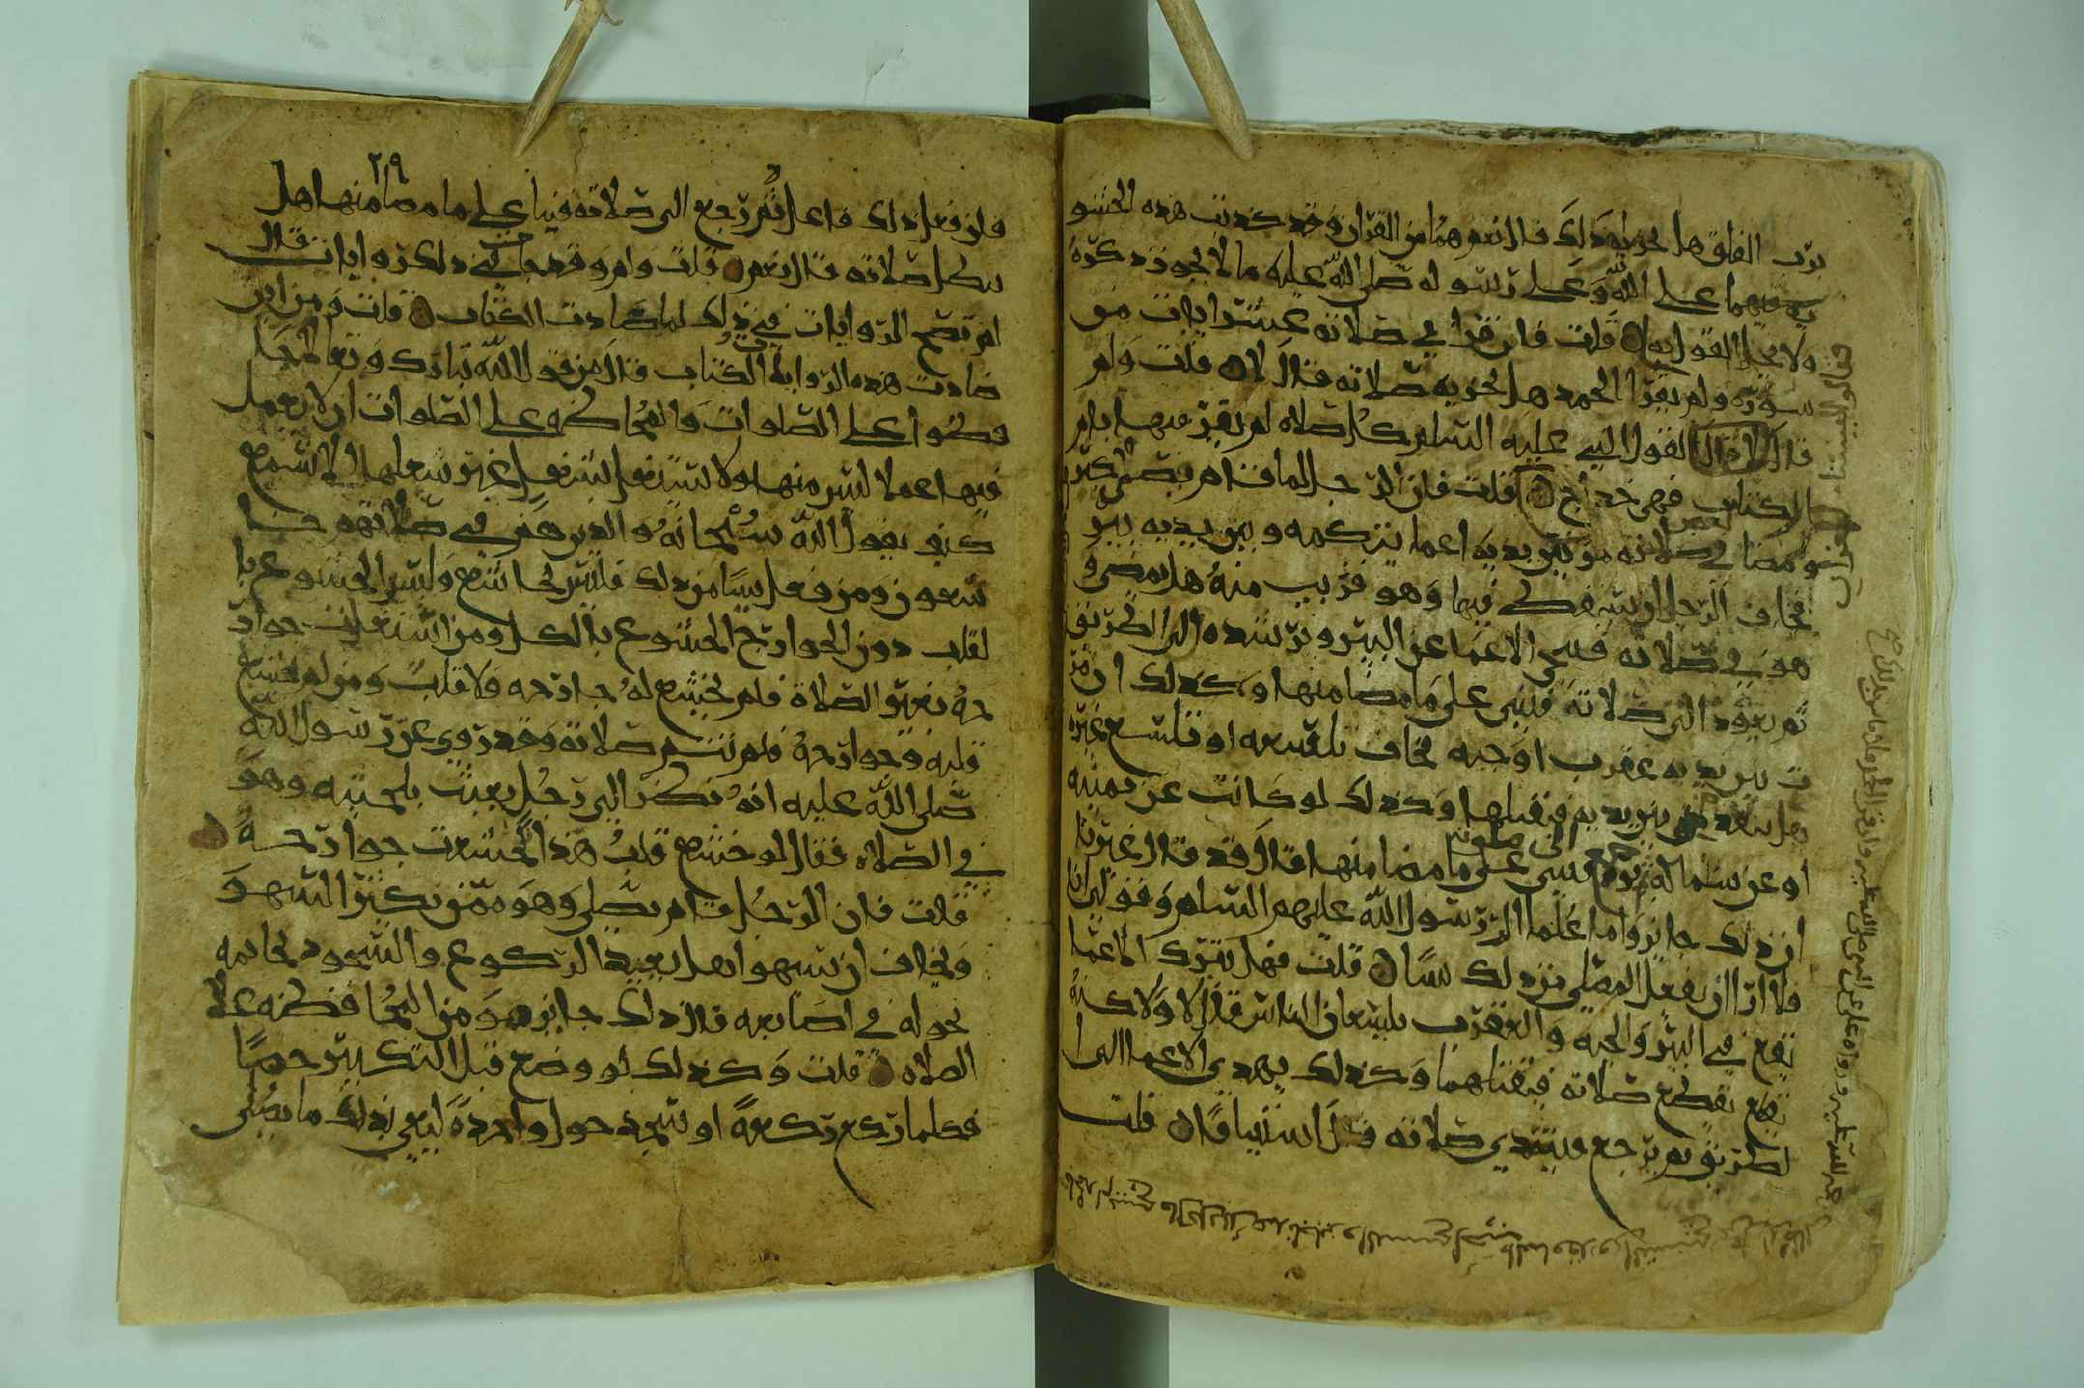 برب الفلق هل يجزيه ذلك قال نعم هما من القرآن وقد كذبت هذه الحشو
فيهما على الله وعلى رسوله صلى الله عليه ما لا يجوز ذكره
ولا يحل القول به قلت فان قرا في صلاته عشر ايات من
سورة ولم يقرا الحمد هل تجزيه صلاته قال لا قلت ولم
قال لقول النبي عليه السلام كل صلاه لم يقر فيها بام
الكتاب فهي خداج قلت فان الرجل لما قام فصلى
مضا في صلاته مر بين يديه اعما يزكمه وبين يديه بير
يخاف الرجل ان يسقط فيها وهو قريب منه هل يمضي و
هو في صلاته فينحي الاعما عن البير ويرشده الى الطريق
ثم يعود الى صلاته فيبني على ما مضا منها وكذلك ان مر
ت بين يديه عقرب او حيه يخاف تلسعه او تلسع غيره
هل يتقدم بين يديه فيقتلها وكذلك لو كانت عن يمينه
او عن شماله ثم يرجع الى صلوته فيبني على ما مضا منها قال قد قال غيرنا
ان ذلك جايز واما علما ال رسول الله عليهم السلام وقولي انا
فلا ارا ان يفعل المصلي من ذلك شيا قلت فهل يترك الاعما
يقع في البير والحيه والعقرب يلسعان الناس قال لا ولاكنه
يقطع صلاته فيقتلهما وكذلك يهدي الاعما الى ا
لطريق ثم يرجع فيبتدي صلاته قال استينافا قلت
٢٩
فان فعل ذلك فاعل ثم رجع الى صلاته فبنا على ما مضا منها هل
تبطل صلاته قال نعم قلت ولم وقد جا في ذلك روايات قال
لم تصح الروايات في ذلك لما ضادت الكتاب قلت ومن اين
ضادت هذه الرواية الكتاب قال من قول الله تبارك وتعالى حا
فظوا على الصلوات والمحافظه على الصلوات ان لا يعمل
فيها عملا ليس منها ولا يشتغل بشغل غير شغلها الا تسمع
كيف يقول الله سبحانه والذين هم في صلاتهم خا
شعون ومن فعل شيا من ذلك فليس بخاشع وليس الخشوع با
لقلب دون الجوارح الخشوع بالكل ومن اشتغلت جوار
حه بغير الصلاة فلم تخشع له جارحه ولا قلب ومن لم يخشع
قلبه وجوارحه فلم تتم صلاته وقد روي عن رسول الله
صلى الله عليه انه نظر الى رجل يعبث بلحيته وهو
في الصلاه فقال لو خشع قلب هذا لخشعت جوارحه
قلت فان الرجل قام يصلي وهو ممن يكثر السهو
ويخاف ان يسهوا هل يعيد الركوع والسجود بخاتمه
يحوله في اصابعه قال ذلك جايز هو من المحافظه على
الصلاه قلت وكذلك لو وضع قبل التكبير حصا
فكلما ركع ركعة او سجد حول واحدة ليعي بذلك ما يصلي